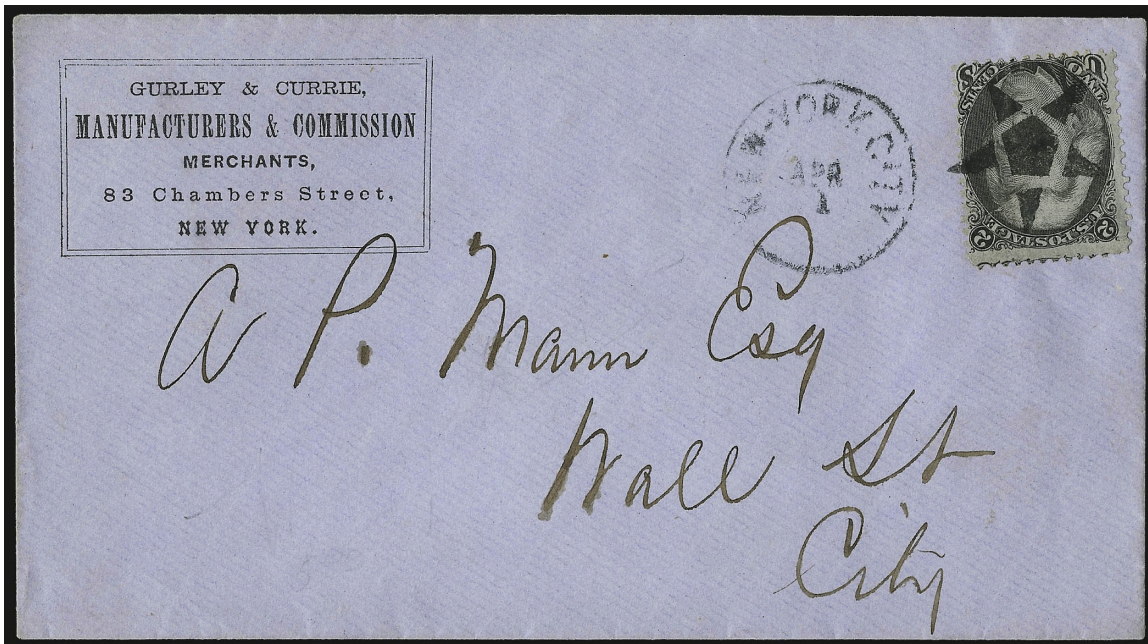 GURLEY & CURRIE,
MANUFACTURERS & COMMISSION
MERCHANTS,
83 Chambers Street,
NEW YORK.
NEW-YORK CITY
APR
1
U.S. POSTAGE
2 2
TWO CENTS
A P. Mann Esq
Wall St
City